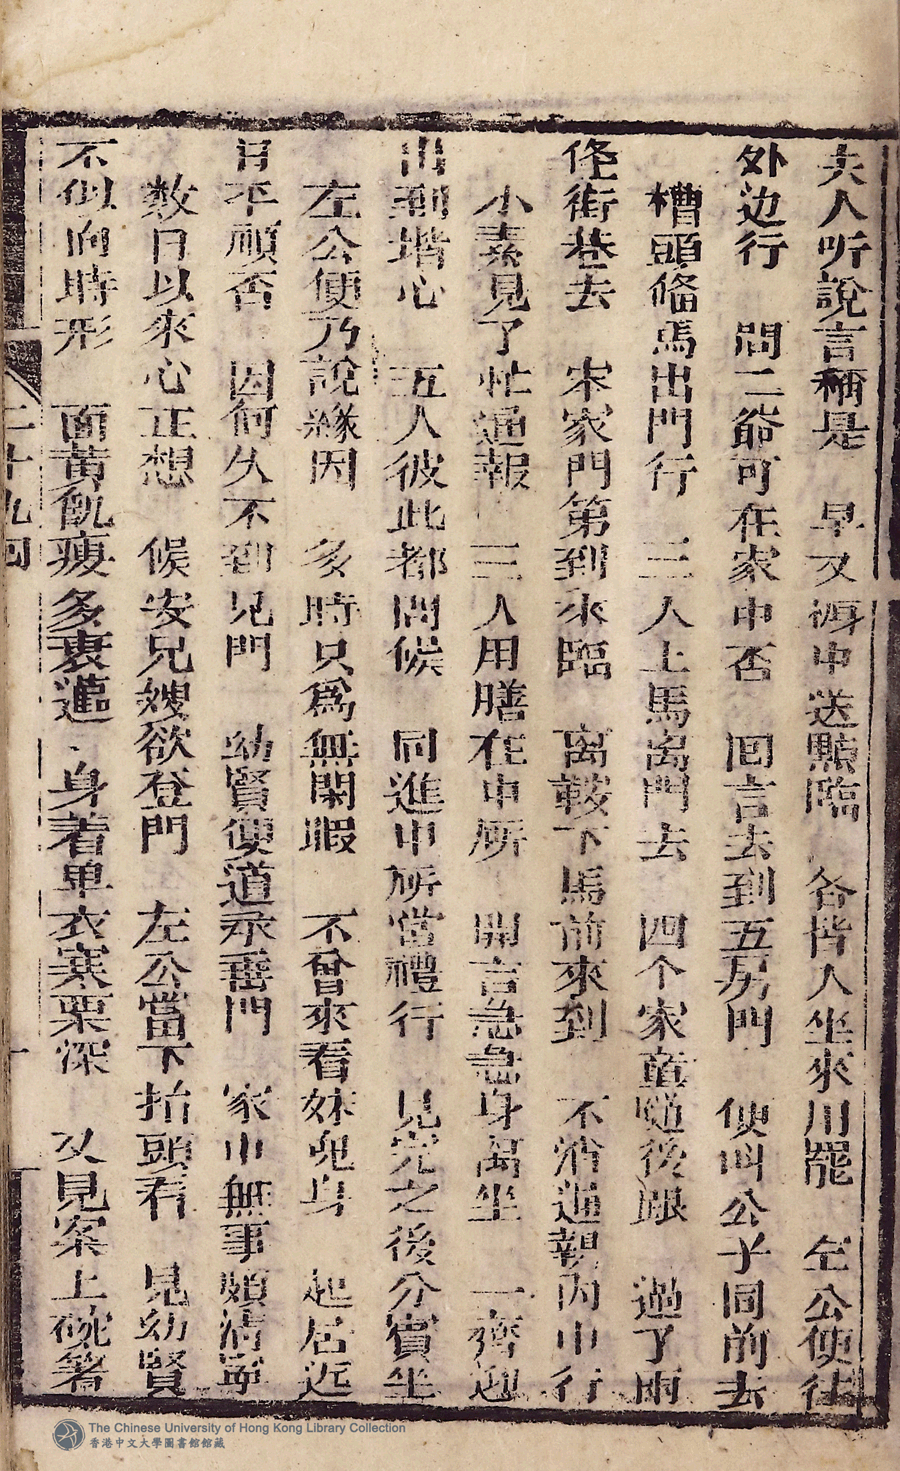 夫人听說言稱是　早又𢊍中送㸃臨　各皆人坐來用罷　左公便往
外边行　問二爺可在家中否　回言去到五房門　便叫公子同前去
槽頭俻馬出門行　三人上馬离門去　四个家童随後跟　過了兩
俓街巷去　宋家門第到來臨　离鞍下馬前來到　不消通報内中行
小素見了忙通報　三人用膳在中𠫇　開言急急身离坐　一齊迎
出到堦心　五人彼此都問候　同進中𠫇當禮行　見完之後分賓坐
左公便乃說緣因　多時只爲無閑暇　不曾來看妹兒身　起居近
日平順否　因何久不到兄門　幼賢便道承垂問　家中無事頗清寜
数日以來心正想　候安兄嫂欲登門　左公當下抬頭看　見幼賢
不似向時形　面黄飢瘦多衰邁　身着单衣寒栗深　又見案上碗箸
二十九回
The Chinese University of Hong Kong Library Collection
香港中文大學圖書館館藏